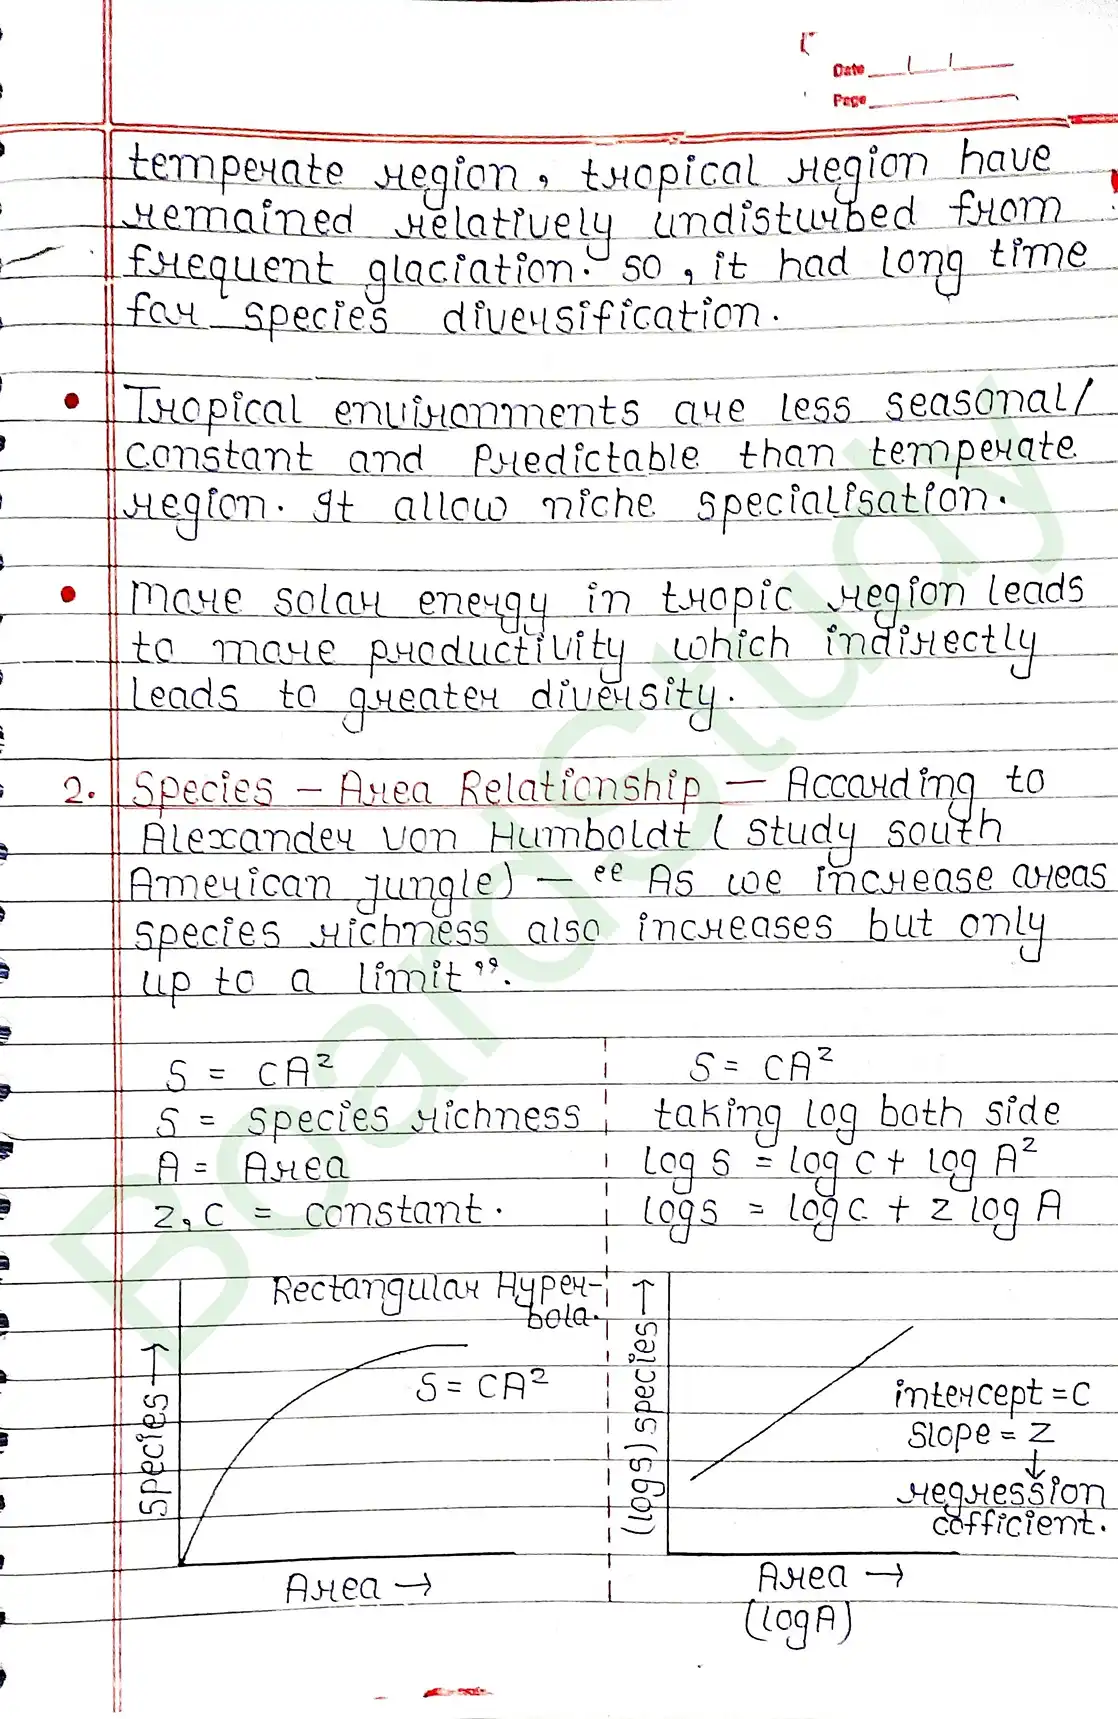 Date
Page
temperate region, tropical region have
remained relatively undisturbed from
frequent glaciation. so, it had long time
for species diversification.
• Tropical environments are less seasonal/
constant and Predictable than temperate
region. It allow niche specialisation.
• more solar energy in tropic region leads
to more productivity which indirectly
leads to greater diversity.
2. Species - Area Relationship — According to
Alexander von Humboldt ( study south
American jungle) — “ As we increase areas
species richness also increases but only
up to a limit ”.
S = CA²
S = species richness
A = Area
z, c = constant.
S = CA²
taking log both side
log s = log c + log A²
log s = log c + z log A
Rectangular Hyper-
bola.
S = CA²
Species →
Area →
(log s) species →
intercept = C
Slope = Z
↓
regression
cofficient.
Area →
(log A)
BoardStudy